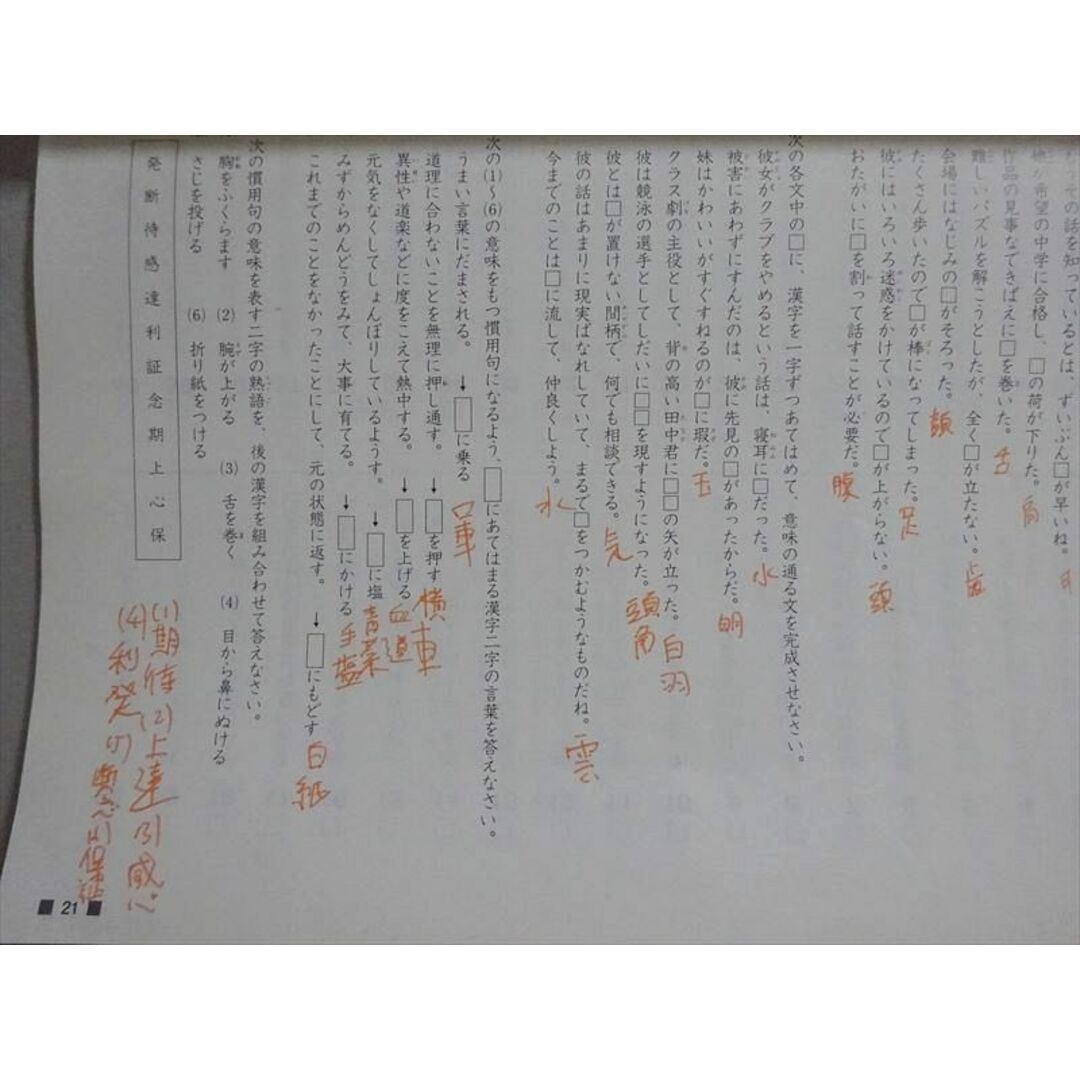 その話を知っているとは、ずいぶん□が早いね。
娘が希望の中学に合格し、□の荷が下りた。 肩
作品の見事なできばえに□を巻いた。 舌
難しいパズルを解こうとしたが、全く□が立たない。 歯
会場にはなじみの□がそろった。 顔
たくさん歩いたので□が棒になってしまった。 足
彼にはいろいろ迷惑をかけているので□が上がらない。 頭
おたがいに□を割って話すことが必要だ。 腹
次の各文中の□に、漢字を一字ずつあてはめて、意味の通る文を完成させなさい。
彼女がクラブをやめるという話は、寝耳に□だった。 水
被害にあわずにすんだのは、彼に先見の□があったからだ。 明
妹はかわいいがすぐすねるのが□に瑕だ。 玉
クラス劇の主役として、背の高い田中君に□□の矢が立った。 白羽
彼は競泳の選手としてしだいに□□を現すようになった。 頭角
彼とは□が置けない間柄で、何でも相談できる。 気
彼の話はあまりに現実ばなれしていて、まるで□をつかむようなものだね。 雲
今までのことは□に流して、仲良くしよう。 水
次の(1)〜(6)の意味をもつ慣用句になるよう、□にあてはまる漢字二字の言葉を答えなさい。
うまい言葉にだまされる。 → □に乗る 口車
道理に合わないことを無理に押し通す。 → □を押す 横車
異性や道楽などに度をこえて熱中する。 → □を上げる 血道
元気をなくしてしょんぼりしているようす。 → □に塩 青菜
みずからめんどうをみて、大事に育てる。 → □にかける 手塩
これまでのことをなかったことにして、元の状態に返す。 → □にもどす 白紙
次の慣用句の意味を表す二字の熟語を、後の漢字を組み合わせて答えなさい。
胸をふくらます (2) 腕が上がる (3) 舌を巻く (4) 目から鼻にぬける
さじを投げる (6) 折り紙をつける
発 断 待 感 達 利 証 念 期 上 心 保
(1)期待 (2)上達 (3)感心
(4)利発
保証
■ 21 ■